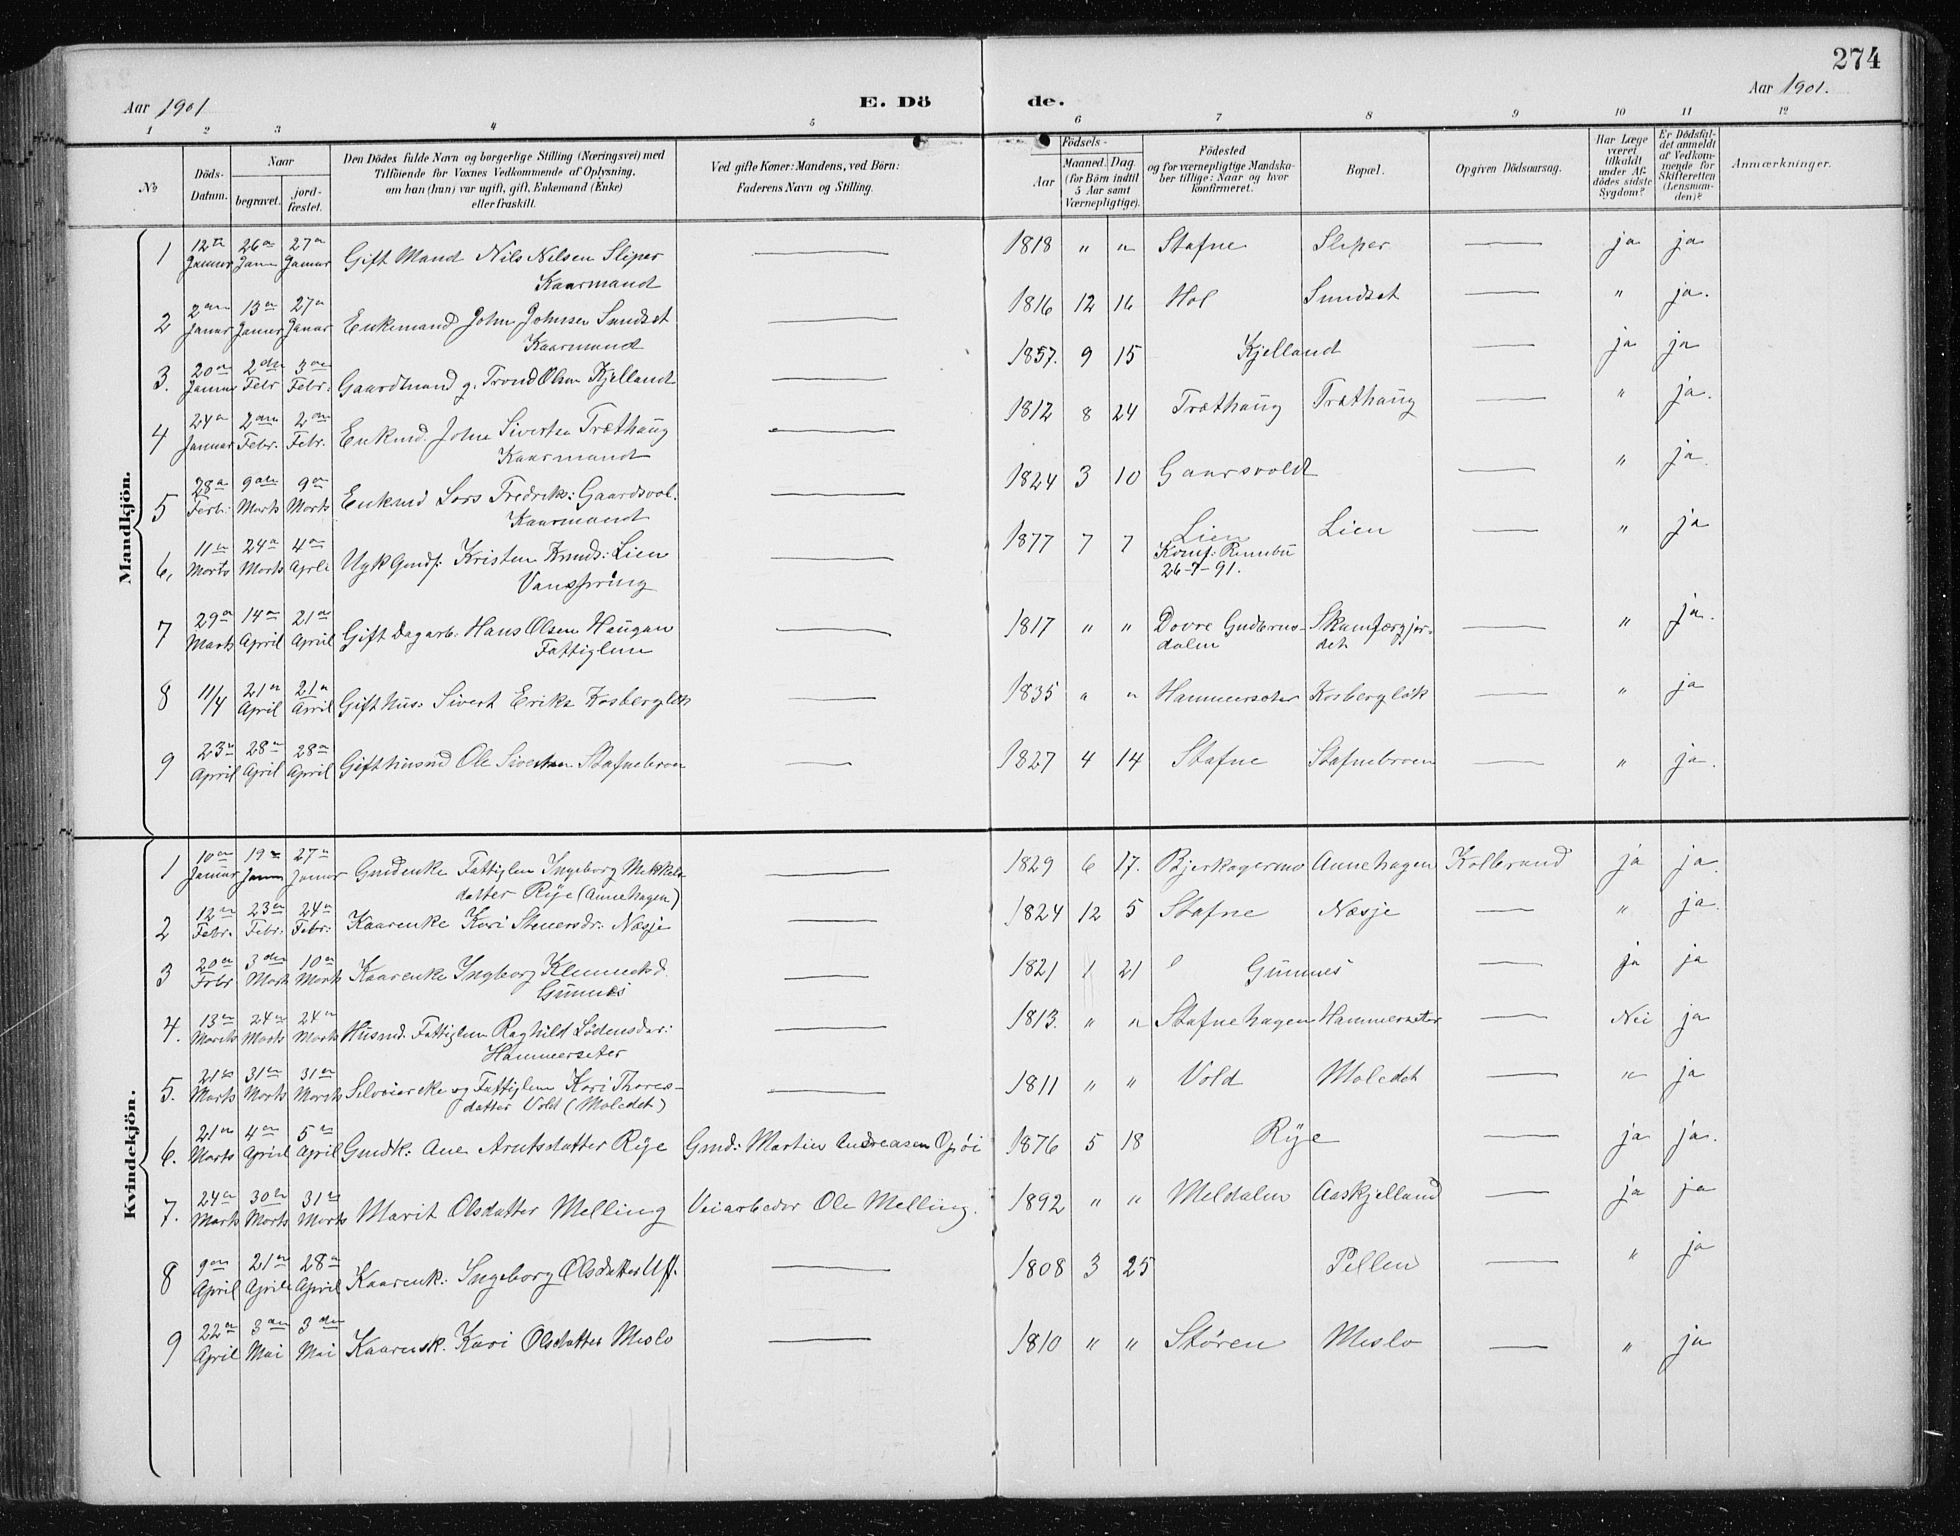 274
Aar 1901
E. Dö
de.
Aar 1901.
1 2 3 4 5 6 7 8 9 10 11 12
No
Döds-Datum.
Naar
begravet.
jord-fæstet.
Den Dödes fulde Navn og borgerlige Stilling (Næringsvei) med
Tilföiende for Voxnes Vedkommende af Oplysning,
om han (hun) var ugift, gift, Enkemand (Enke)
eller fraskilt.
Ved gifte Koner: Mandens, ved Börn:
Faderens Navn og Stilling.
Födsels-
Aar
Maaned. Dag.
(for Börn indtil
5 Aar samt
Værnepligtige).
Födested
og for værnepligtige Mandska-
ber tillige: Naar og hvor
konfirmeret.
Bopæl.
Opgiven Dödsaarsag.
Har Læge
været
tilkaldt
under Af-
dödes sidste
Sygdom?
Er Dödsfal-
det anmeldt
af Vedkom-
mende for
Skifteretten
(Lensman-
den)?
Anmærkninger.
Mandkjön.
1 12te Januar 26de Janu 27de Januar Gift Mand Nils Nilsen Sliper — 1818 " " Stafne Sliper — ja ja
Kaarmand
2 2den Januar 13de Januar 27de Januar Enkemand John Johnsen Sundset — 1816 12 16 Hol Sundset — " ja.
Kaarmand
3. 20de Januar 2den Febr 3de Febr. Gaardmand g. Trond Olsen Kjelland — 1857. 9 15 Kjelland — ja ja
4 24de Januar 2den Febr. 2den Febr. Enkmd. John Sivertsen Træthaug — 1812 8 24 Træthaug Træthaug — " ja.
Kaarmand
5 28de Febr: 9de Marts 9de Marts Enkmd Lars Fredriks: Gaardsvol. — 1824 3 10 Gaarsvoldt — " ja.
Kaarmand
6, 11te Marts 24de Marts 4de April Ugk Gmdf: Kristen Knuds: Lien — 1877 7 7 Lien Lien — " ja
Konf: Rennebu
26-7-91.
7 29de Marts 14de April 21de April Gift Dagarb: Hans Olsen Haugan — 1817 " " Dovre Gudbrns- Skamfærgjer- — " ja.
Fattiglem dalen det
8 11/4 21de April 21de April Gift hus: Sivert Eriks Kosbergløk — 1835 " " Hammerseter Kosbergløk — " ja
9 23de April 28de April 28de April Gift husmd Ole Sivertsen Stafnebroen — 1827 4 14 Stafne Stafnebroen — " ja.
Kvindekjön.
1 10de Januar 19de Janu 27de Januar Gmdenke Fattiglem Ingeborg Mikkels- — 1829 6 17. Bjerkagermo Annehagen Kolbrand ja ja.
datter Rije (Annehagen)
2 12te Febr. 23de Febr: 24de Febr: Kaarenke Kari Steners dr: Næsje — 1824 12 5 Stafne Næsje — " ja.
3 20de Febr 3den Marts 10de Marts Kaarenke Ingborg Klemmetsd. — 1821 1 21 " Gunnes — ja ja
Gunnes
4. 13de Marts 24de Marts 24de Marts Husmd. Fattiglem Raghild Lødensdar: — 1813. " " Stafnehagen Hammerseter — Nei ja
Hammerseter
5. 21de Marts 31de Marts 31de Marts Selveierenke og Fattiglem Kari Thores- — 1811 " " Vold Moledet — " ja
datter Vold (Moledet)
6. 21de Marts 4de April 5de April Gmdk: Ane Arntsdatter Rije Gmd: Martin Andreasen Opøi 1876 5 18 Rije — ja ja.
7. 24de Marts 30de Marts 31de Marts Marit Olsdatter Melling Veiarbeder Ole Melling. 1892 " " Meldalen Aaskjelland — ja ja
8 9de April 21de April 28de April Kaarenk: Ingeborg Olsdatter Uf. — 1808 3 25 Pellen — " ja
9 22de April 3den Mai 3den Mai Kaarensk. Kari Olsdatter Meslo — 1810 " " Støren Meslo — " ja